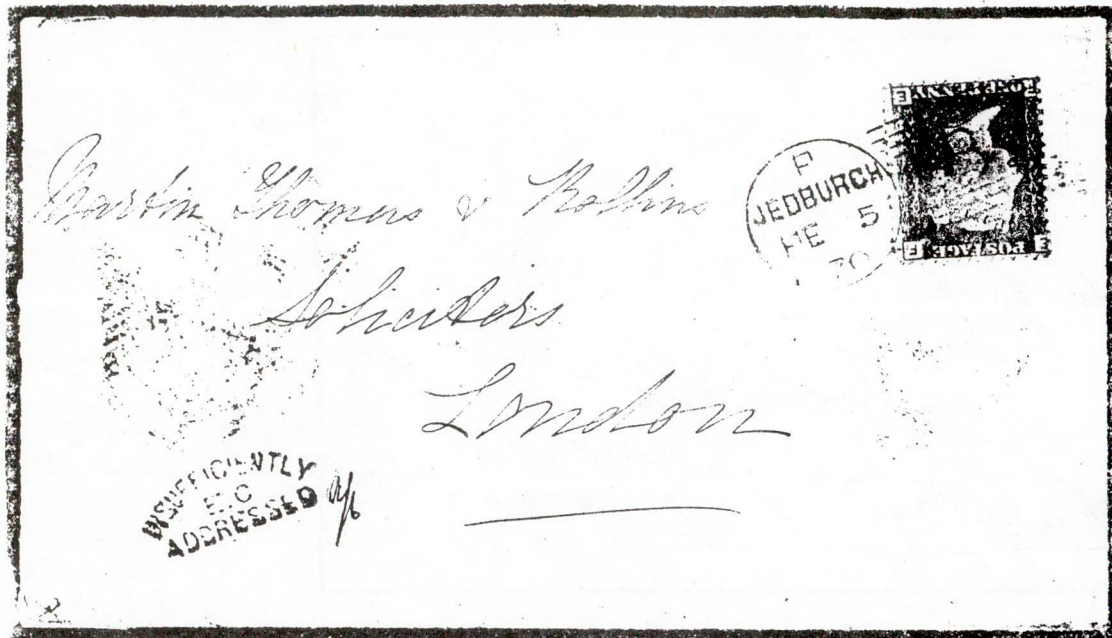 Martin Thomas & Rollins
Solicitors
London
P
JEDBURGH
5
70
ONE PENNY
POSTAGE
INSUFFICIENTLY
E.C
ADDRESSED